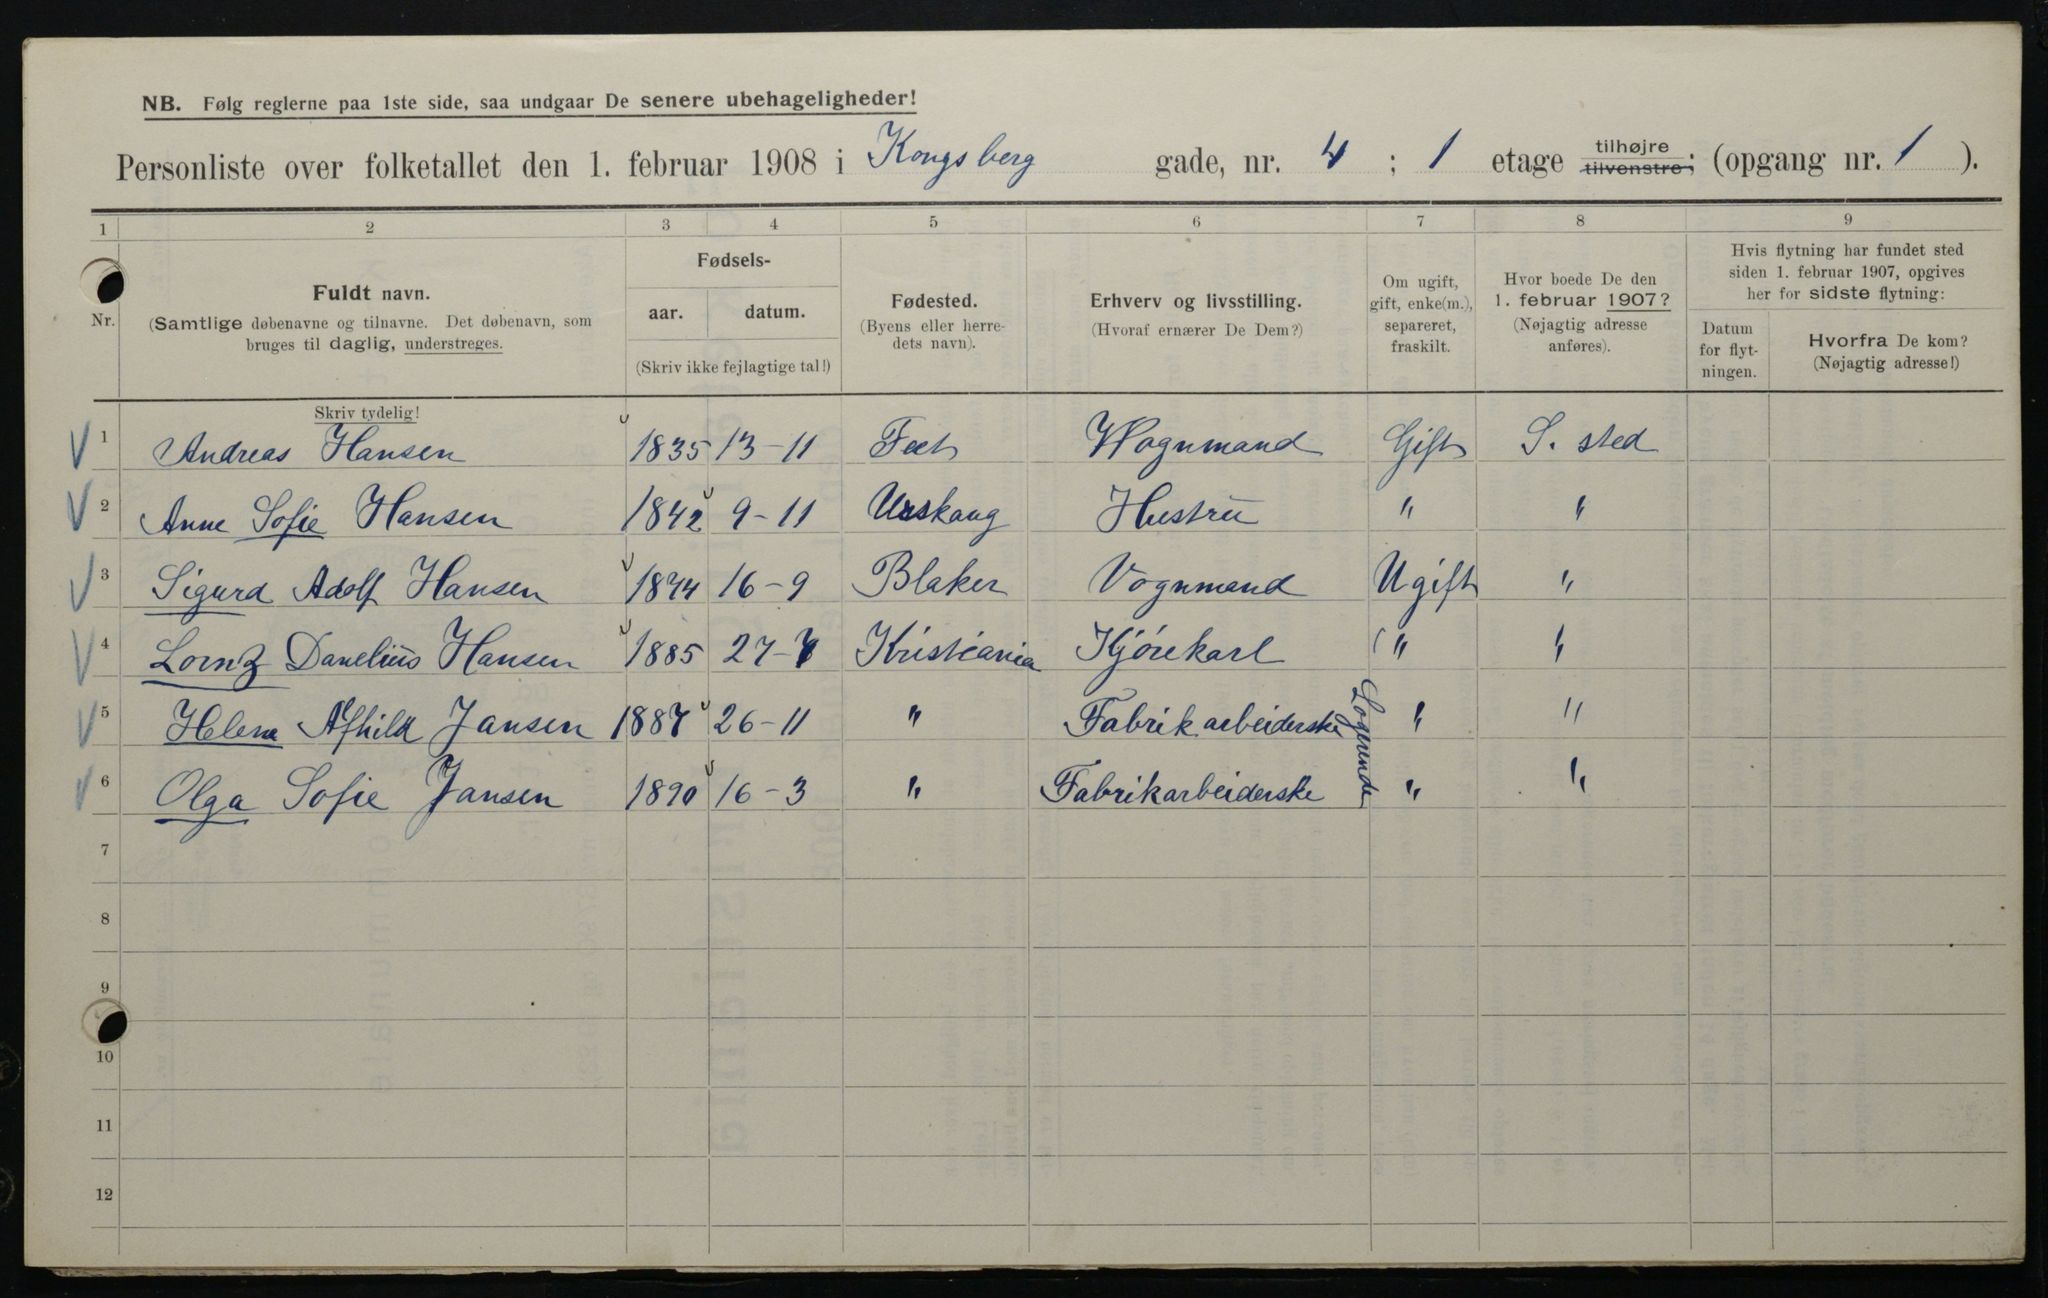 NB. Følg reglerne paa 1ste side, saa undgaar De senere ubehageligheder!
Personliste over folketallet den 1. februar 1908 i Kongsberg gade, nr. 4 ; 1 etage tilhøjre tilvenstre; (opgang nr. 1 ).
1 2 3 4 5 6 7 8 9
Nr.
Fuldt navn.
(Samtlige døbenavne og tilnavne. Det døbenavn, som
bruges til daglig, understreges.
Fødsels-
aar. datum.
(Skriv ikke fejlagtige tal!)
Fødested.
(Byens eller herre-
dets navn).
Erhverv og livsstilling.
(Hvoraf ernærer De Dem?)
Om ugift,
gift, enke(m.),
separeret,
fraskilt.
Hvor boede De den
1. februar 1907?
(Nøjagtig adresse
anføres).
Hvis flytning har fundet sted
siden 1. februar 1907, opgives
her for sidste flytning:
Datum
for flyt-
ningen.
Hvorfra De kom?
(Nøjagtig adresse!)
Skriv tydelig!
1 Andreas Hansen 1835 13-11 Fet Wognmand Gift S. sted
2 Anne Sofie Hansen 1842 9-11 Urskaug Hustru " "
3 Sigurd Adolf Hansen 1874 16-9 Blaker Vognmand Ugift "
4 Lorntz Danelius Hansen 1885 27-7 Kristiania Kjørekarl " "
5 Helene Jansen 1887 26-11 " Fabrikarbeiderske Logerende " "
6 Olga Sofie Jansen 1890 16-3 " Fabrikarbeiderske " "
7
8
9
10
11
12